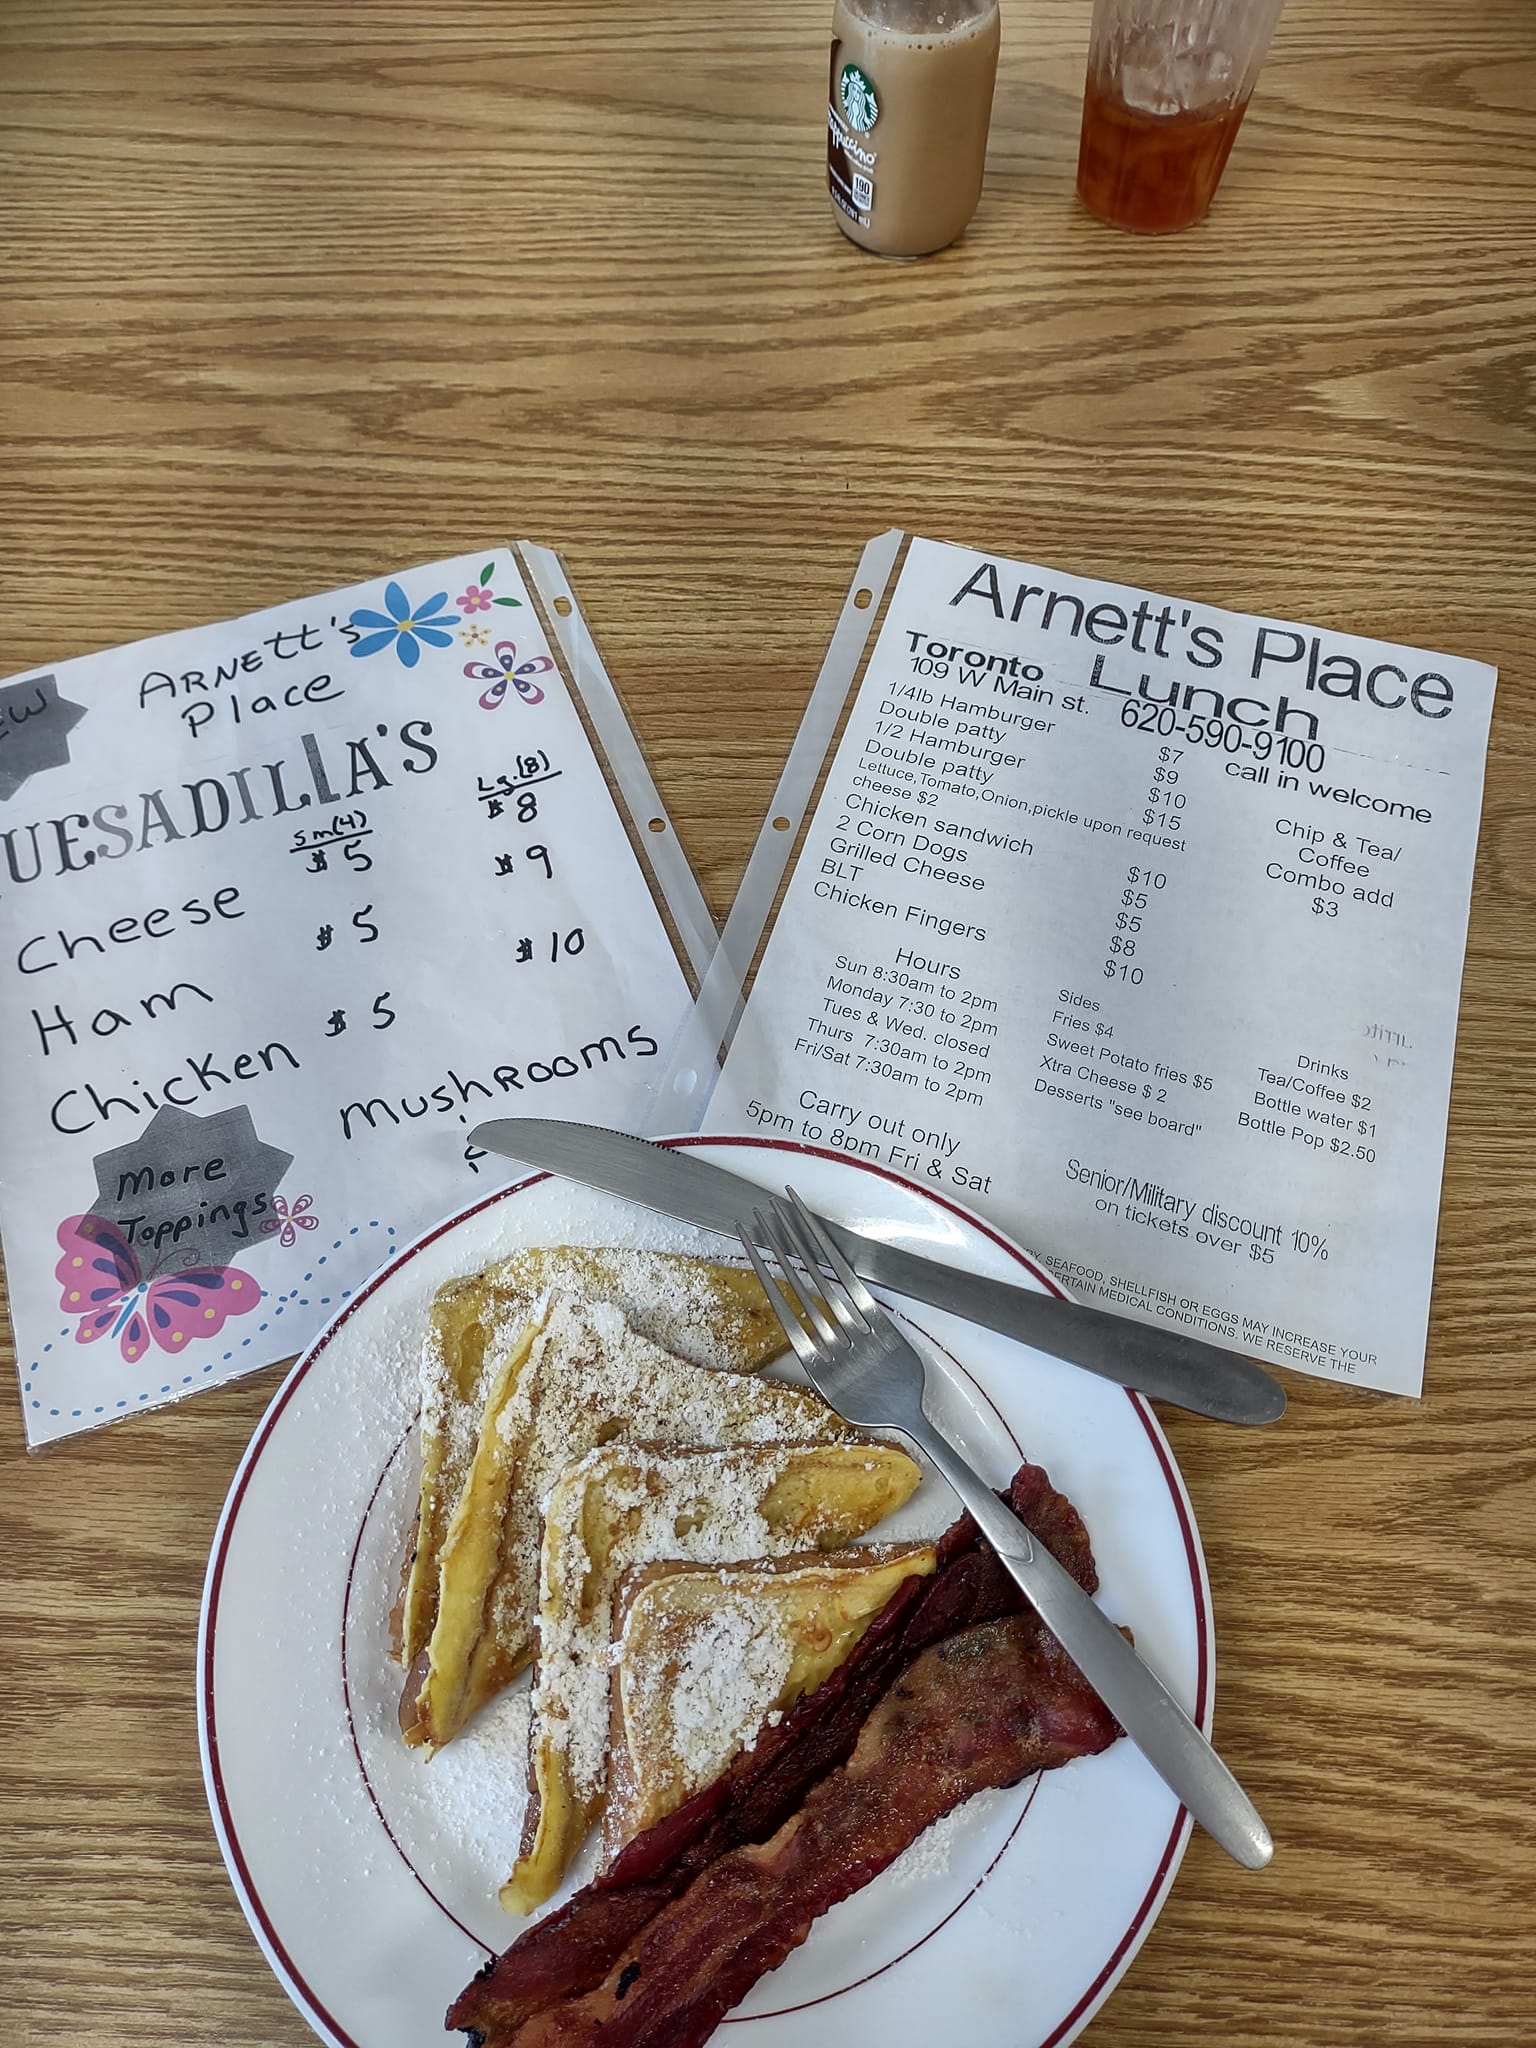 ARNETT'S
Place
UESADILLA'S
Sm(4)
Lg.(8)
Cheese $5 $8
Ham $5 $9
Chicken $5 $10
More
Toppings
MushROOMS
&
Arnett's Place
Lunch
Toronto
109 W Main st.
620-590-9100
call in welcome
1/4lb Hamburger $7
Double patty $9
1/2 Hamburger $10
Double patty $15
Lettuce,Tomato,Onion,pickle upon request
cheese $2
Chicken sandwich $10
2 Corn Dogs $5
Grilled Cheese $5
BLT $8
Chicken Fingers $10
Chip & Tea/
Coffee
Combo add
$3
Hours
Sun 8:30am to 2pm
Monday 7:30 to 2pm
Tues & Wed. closed
Thurs 7:30am to 2pm
Fri/Sat 7:30am to 2pm
Carry out only
5pm to 8pm Fri & Sat
Sides
Fries $4
Sweet Potato fries $5
Xtra Cheese $ 2
Desserts "see board"
Drinks
Tea/Coffee $2
Bottle water $1
Bottle Pop $2.50
Senior/Military discount 10%
on tickets over $5
SEAFOOD, SHELLFISH OR EGGS MAY INCREASE YOUR
CERTAIN MEDICAL CONDITIONS. WE RESERVE THE
190